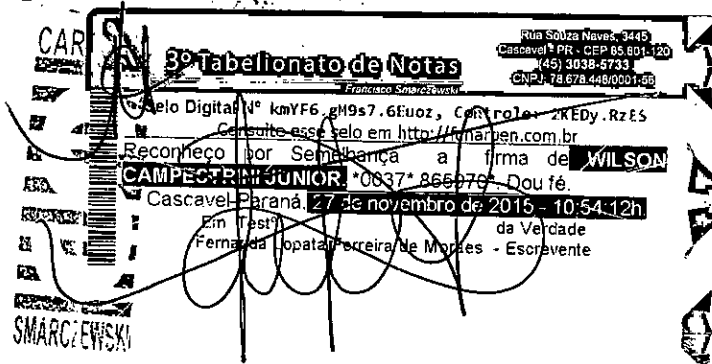 CAR
3º Tabelionato de Notas
Francisco Smarczewski
Rua Souza Naves, 3445
Cascavel - PR - CEP 85.801-120
(45) 3038-5733
CNPJ: 78.678.448/0001-56
Selo Digital Nº kmYF6.gM9s7.6Euoz, Controle: 2kEDy.RzES
Consulte esse selo em http://funarpen.com.br
Reconheço por Semelhança a firma de WILSON
CAMPESTRINI JUNIOR. *0037* 865970*. Dou fé.
Cascavel-Paraná, 27 de novembro de 2015 - 10:54:12h
Em Testº da Verdade
Fernanda Lopata Ferreira de Moraes - Escrevente
SMARCZEWSKI